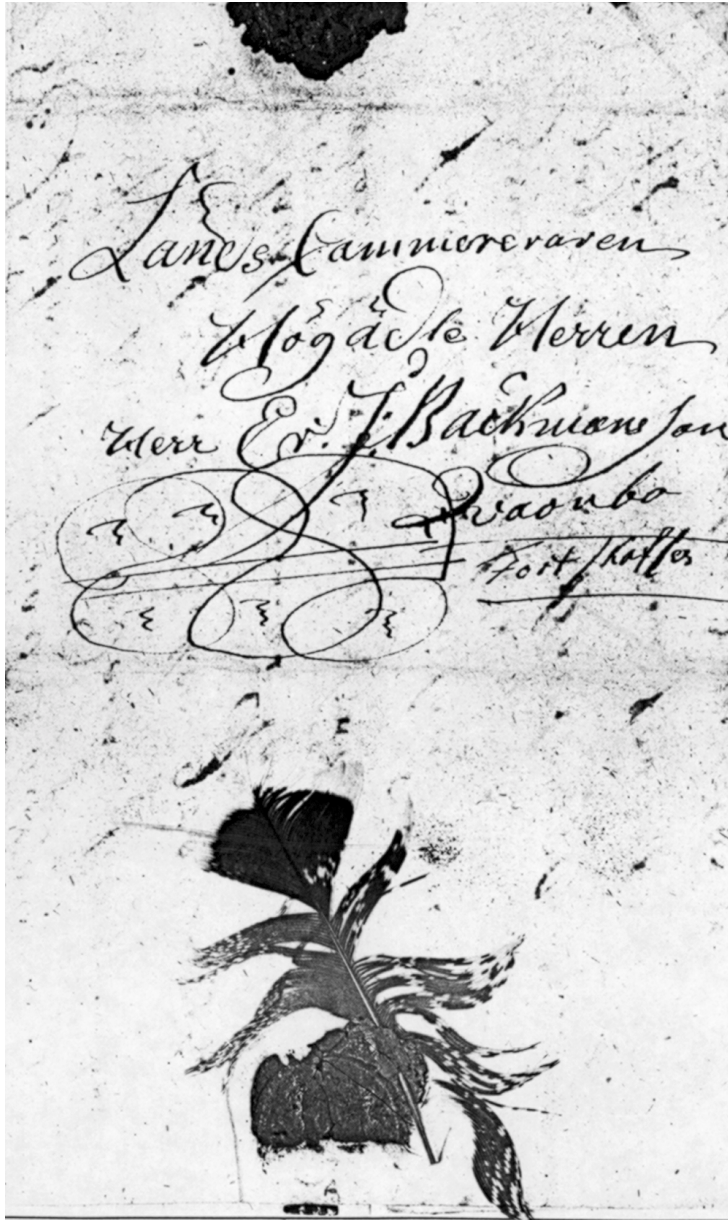 Lands Cammereraren
Högädle Herren
Herr Er. J: Backmansson
Qvaonbo
Fort skaffes